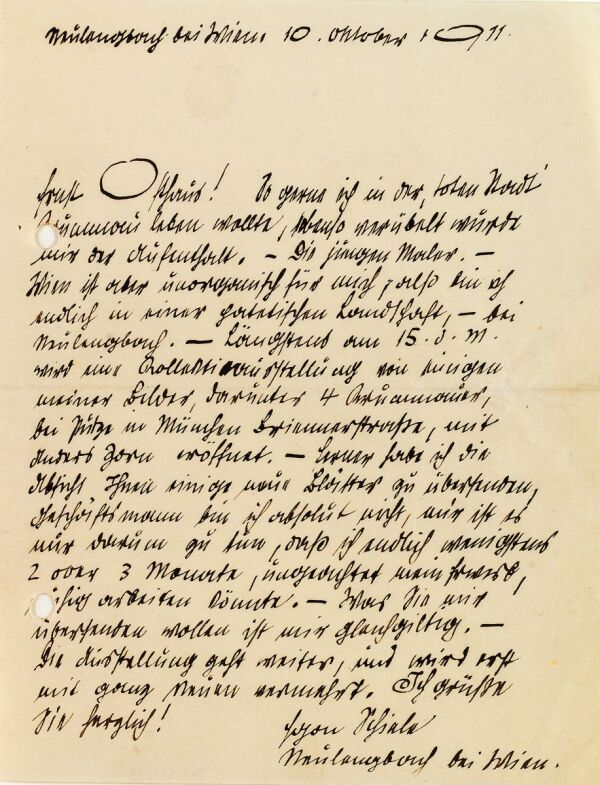 Neulengbach bei Wien. 10. Oktober 1911.
Ernst Osthaus! So gerne ich in der „toten Stadt“
Krummau leben wollte, ebenso verübelt wurde
mir der Aufenthalt. – Die jungen Maler. –
Wien ist aber unorganisch für mich, also bin ich
endlich in einer patetischen Landschaft, – bei
Neulengbach. – Längstens am 15. d. M.
wird eine Kollektivausstellung von einigen
meiner Bilder, darunter 4 Krummauer,
bei Putze in München Briennerstraße, mit
Anders Zorn eröffnet. – Ferner habe ich die
Absicht Ihnen einige neue Blätter zu übersenden,
Geschäftsmann bin ich absolut nicht, mir ist es
nur darum zu tun, daß ich endlich wenigstens
2 oder 3 Monate, ungeachtet mein Erwerb,
ruhig arbeiten könnte. – Was Sie mir
übersenden wollen ist mir gleichgiltig. –
Die Ausstellung geht weiter, und wird erst
mit ganz Neuen vermehrt. Ich grüße
Sie herzlich!
Egon Schiele
Neulengbach bei Wien.